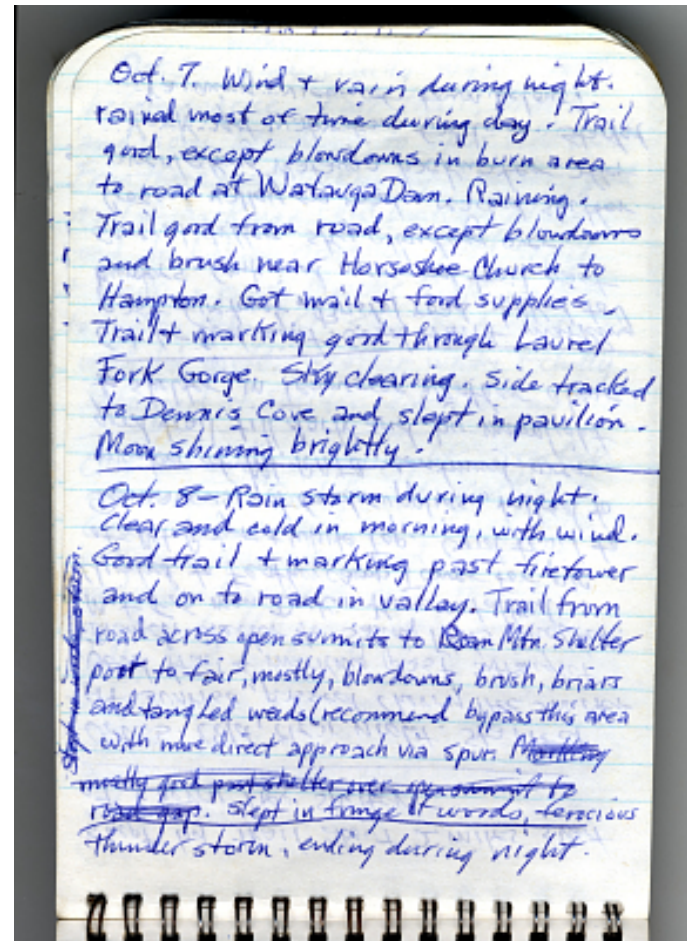 Oct. 7. Wind + rain during night.
rained most of time during day. Trail
good, except blowdowns in burn area
to road at Watauga Dam. Raining.
Trail good from road, except blowdowns
and brush near Horseshoe Church to
Hampton. Got mail + food supplies.
Trail + marking good through Laurel
Fork Gorge. Sky clearing. Side tracked
to Dennis Cove and slept in pavilion.
Moon shining brightly.
Oct. 8 – Rain storm during night.
Clear and cold in morning, with wind.
Good trail + marking past firetower
and on to road in valley. Trail from
road across open summits to Roan Mtn. Shelter
poor to fair, mostly, blowdowns, brush, briars
and tangled weeds (recommend bypass this area
with more direct approach via spur. Marking
mostly good past shelter over open summit to
road gap. Slept in fringe of woods, ferocious
thunder storm, ending during night.